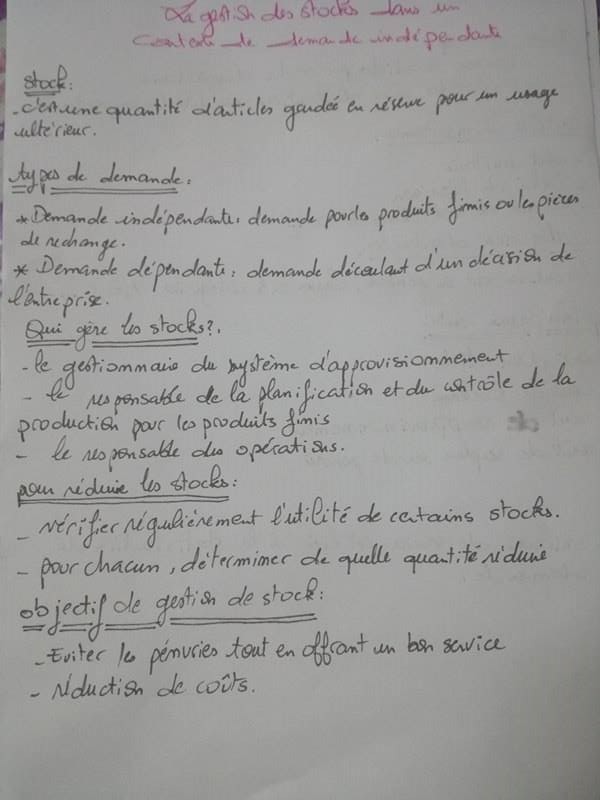 La gestion des stocks dans un
Contexte de demande indépendante
stock:
- c'est une quantité d'articles gardée en réserve pour un usage
ultérieur.
types de demande:
* Demande indépendante: demande pour les produits finis ou les pièces
de rechange.
* Demande dépendante: demande découlant d'un décision de
l'entreprise.
Qui gère les stocks?.
- le gestionnaire du système d'approvisionnement
- le responsable de la planification et du contrôle de la
production pour les produits finis
- le responsable des opérations.
pour réduire les stocks:
- vérifier régulièrement l'utilité de certains stocks.
- pour chacun, déterminer de quelle quantité réduire
objectif de gestion de stock:
- Eviter les pénuries tout en offrant un bon service
- réduction de coûts.